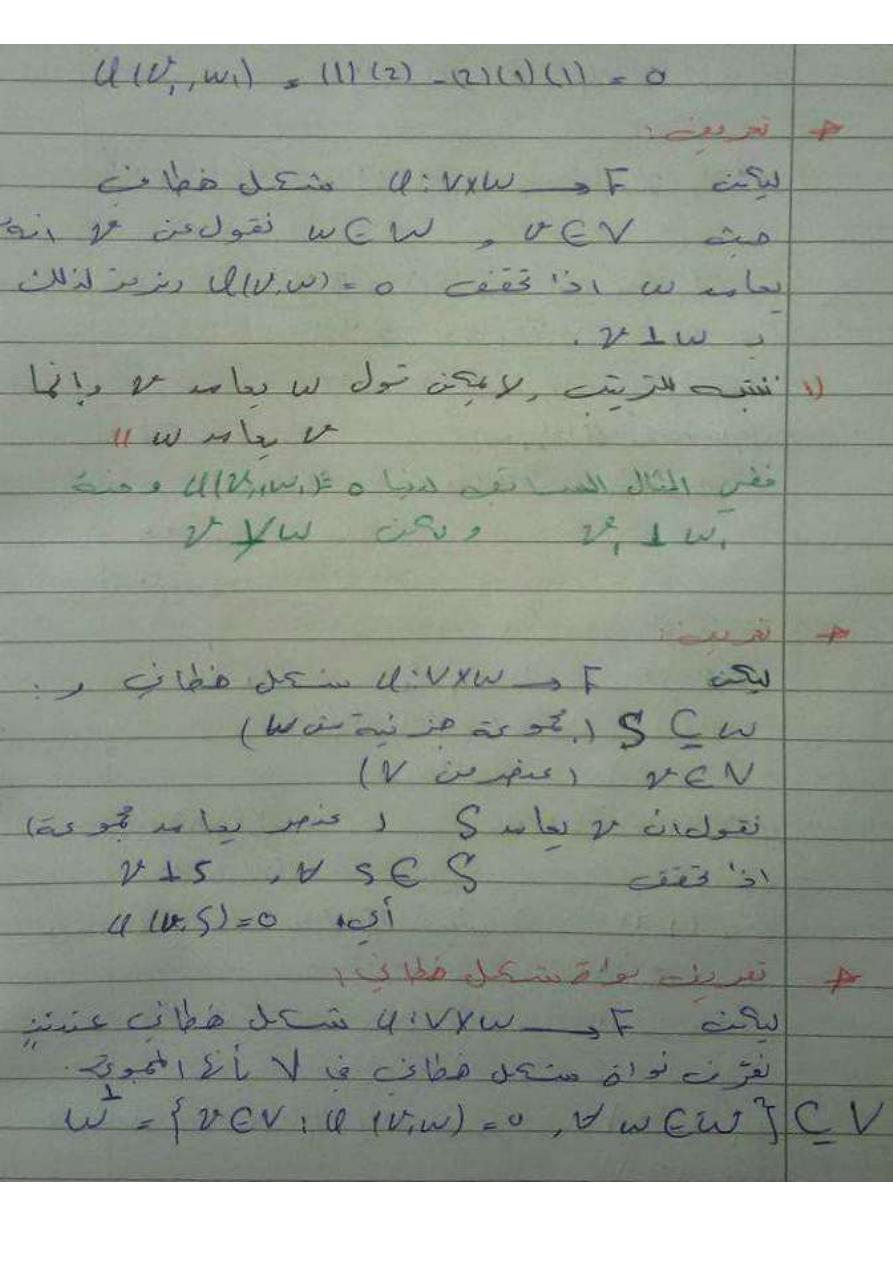 φ(v₁, w₁) = (1)(2) - (2)(1)(1) = 0
* تعريف:
ليكن φ: V×W → F شكل خطاني
حيث v ∈ V و w ∈ W نقول عن v انه
يعامد w اذا تحقق φ(v,w) = 0 ونرمز لذلك
بـ v ⊥ w.
(١ ننتبه للترتيب , لا يمكن قول w يعامد v وإنما
v يعامد w "
ففي المثال السابق لدينا φ(v₁,w₁) = 0 ومنه
v₁ ⊥ w₁ ولكن v ⊥̸ w
* تعريف:
ليكن φ: V×W → F شكل خطاني و:
S ⊆ W (مجموعة جزئية من W)
v ∈ V (عنصر من V)
نقول ان v يعامد S (عنصر يعامد مجموعة)
اذا تحقق v ⊥ s , ∀ s ∈ S
أي: φ(v,S) = 0
* تعريف نواة شكل خطاني:
ليكن φ: V×W → F شكل خطاني عندئذٍ
نعرّف نواة شكل خطاني في V بأنها المجموعة:
W^⊥ = {v ∈ V : φ(v,w) = 0 , ∀ w ∈ W} ⊆ V